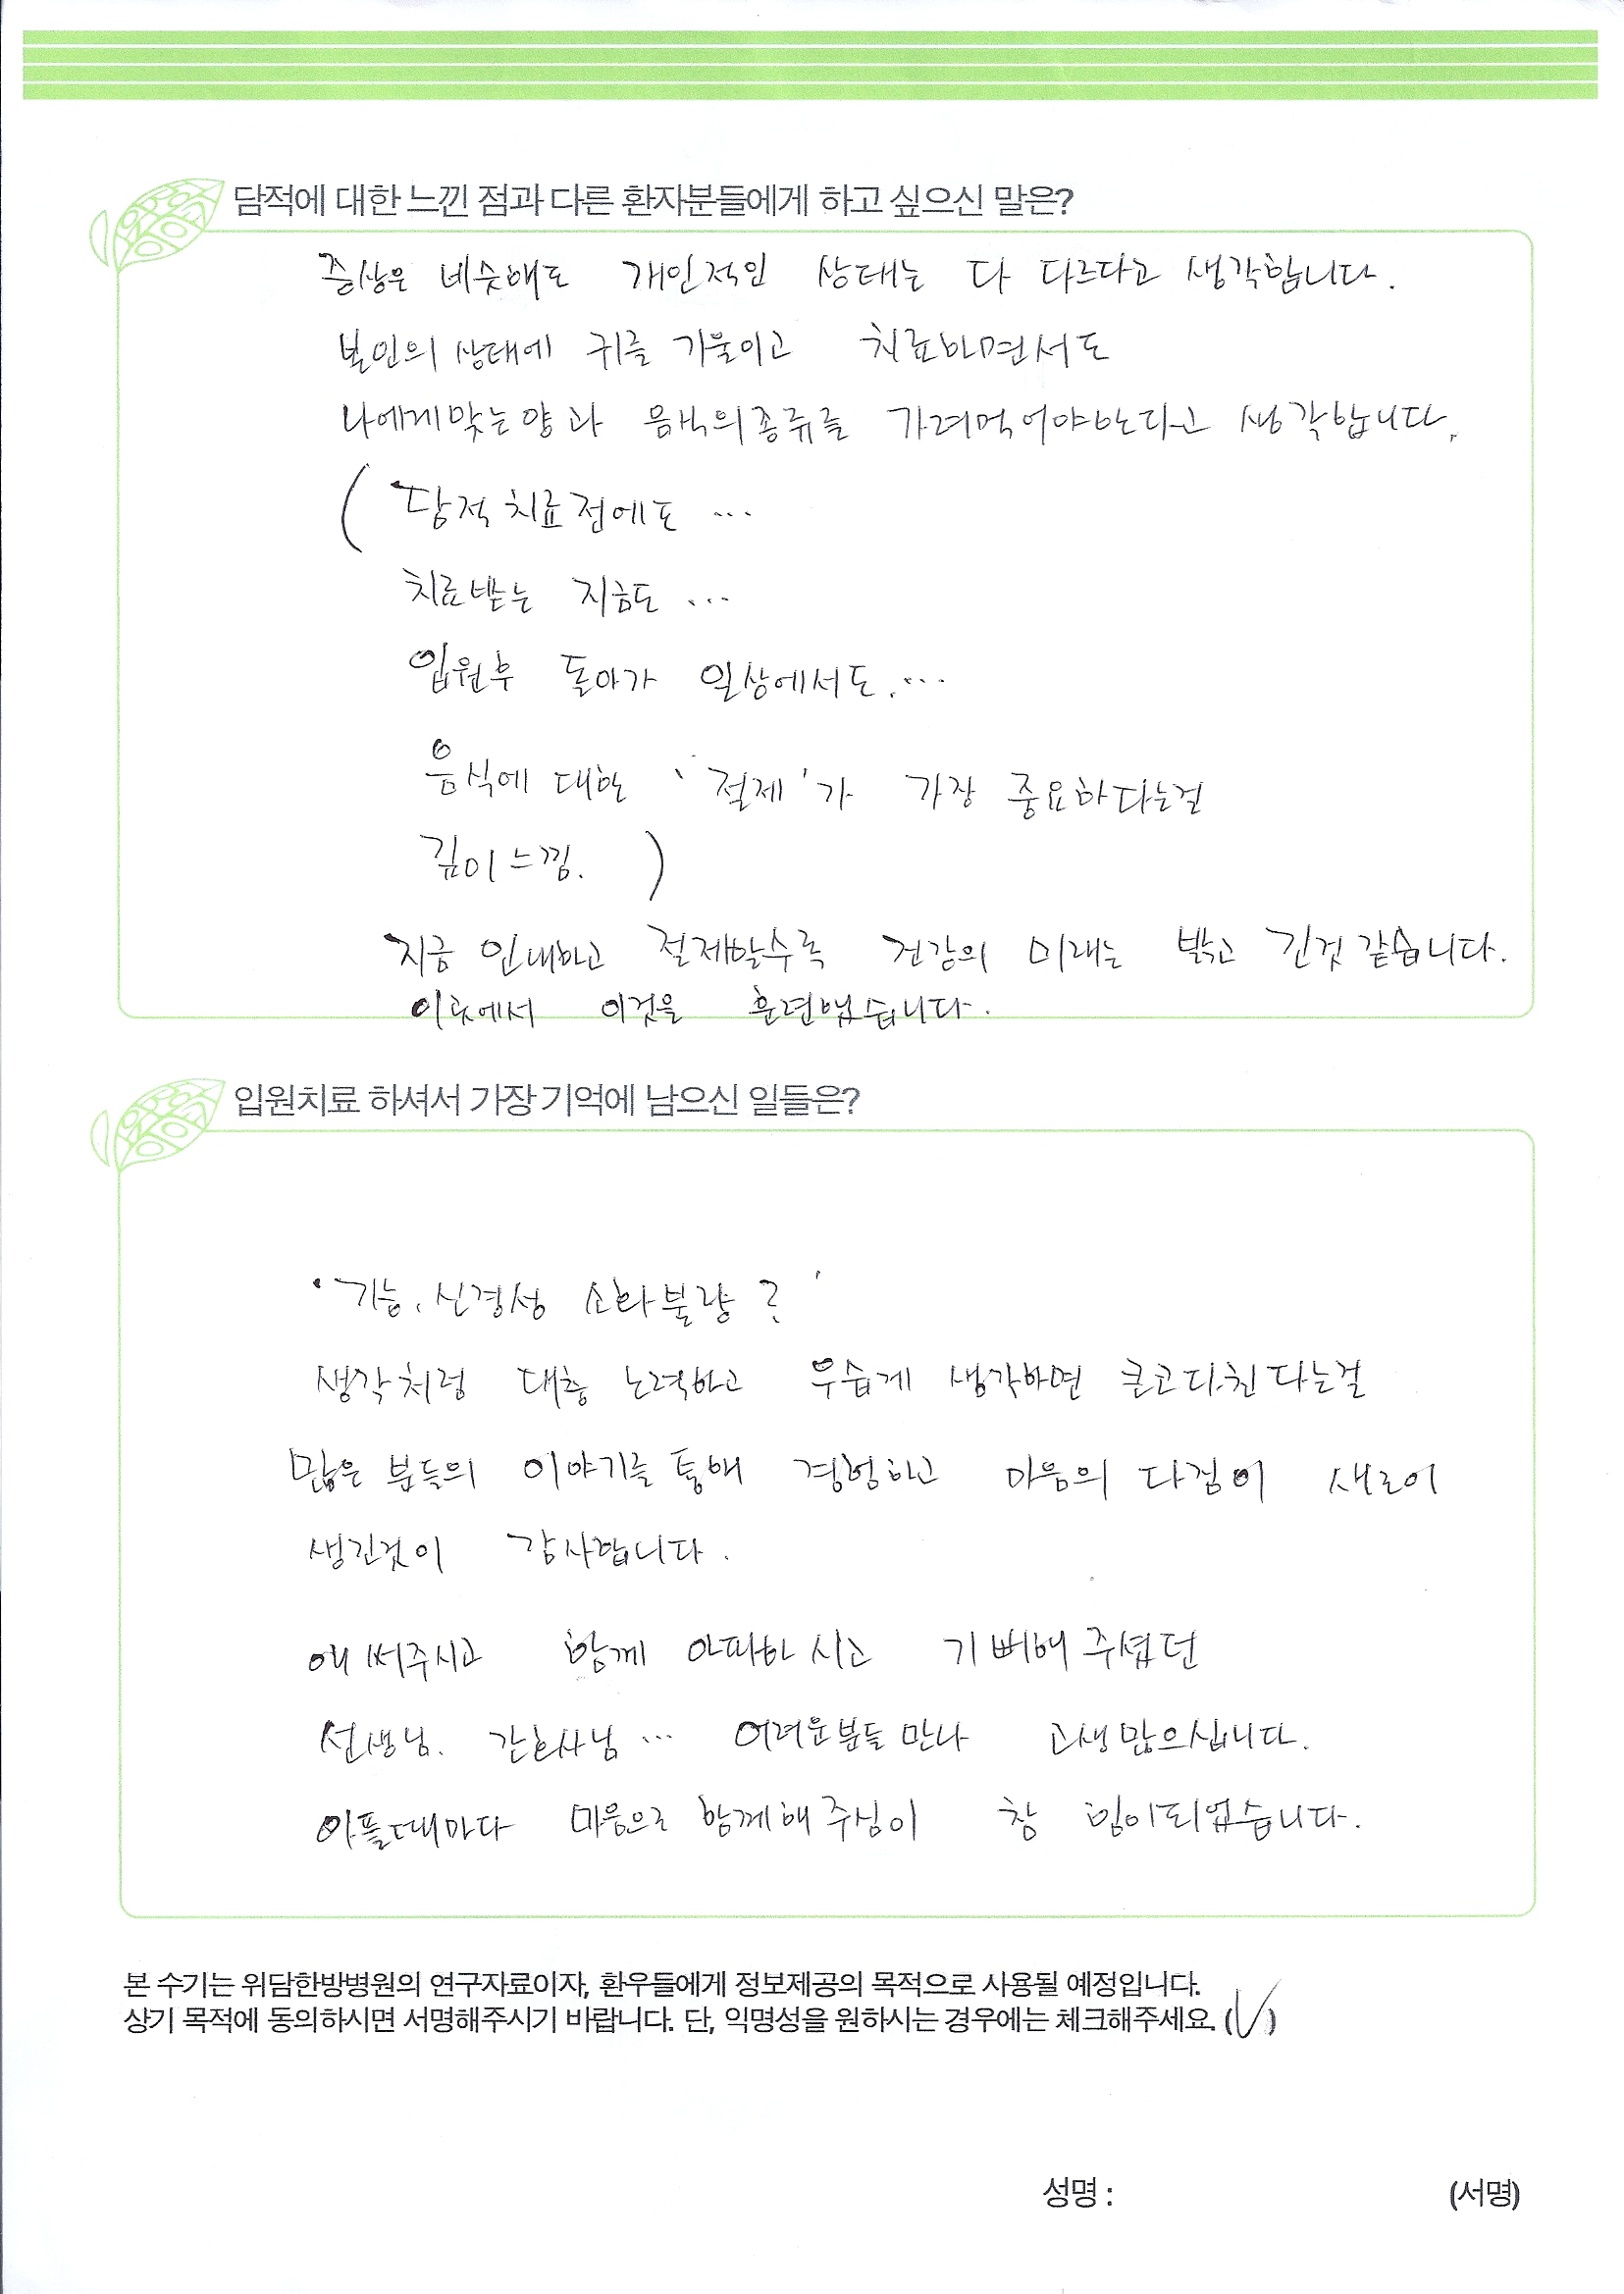 담적에 대한 느낀 점과 다른 환자분들에게 하고 싶으신 말은?
증상은 비슷해도 개인적인 상태는 다 다르다고 생각합니다.
본인의 상태에 귀를 기울이고 치료하면서도
나에게 맞는 양과 음식의 종류를 가려먹어야한다고 생각합니다.
( 담적 치료전에도 ...
치료받는 지금도 ...
입원후 돌아가 일상에서도....
음식에 대한 '절제'가 가장 중요하다는걸
깊이 느낌. )
지금 인내하고 절제할수록 건강의 미래는 밝고 긴것 같습니다.
이곳에서 이것을 훈련했습니다.
입원치료 하셔서 가장 기억에 남으신 일들은?
'기능, 신경성 소화불량?'
생각처럼 대충 노력하고 우습게 생각하면 큰코다친다는걸
많은 분들의 이야기를 통해 경험하고 마음의 다짐이 새로이
생긴것이 감사합니다.
애써주시고 함께 아파하시고 기뻐해 주셨던
선생님. 간호사님 ... 어려운분들 만나 고생많으십니다.
아플때마다 마음으로 함께해 주심이 참 힘이되었습니다.
본 수기는 위담한방병원의 연구자료이자, 환우들에게 정보제공의 목적으로 사용될 예정입니다.
상기 목적에 동의하시면 서명해주시기 바랍니다. 단, 익명성을 원하시는 경우에는 체크해주세요. (√)
성명 : (서명)